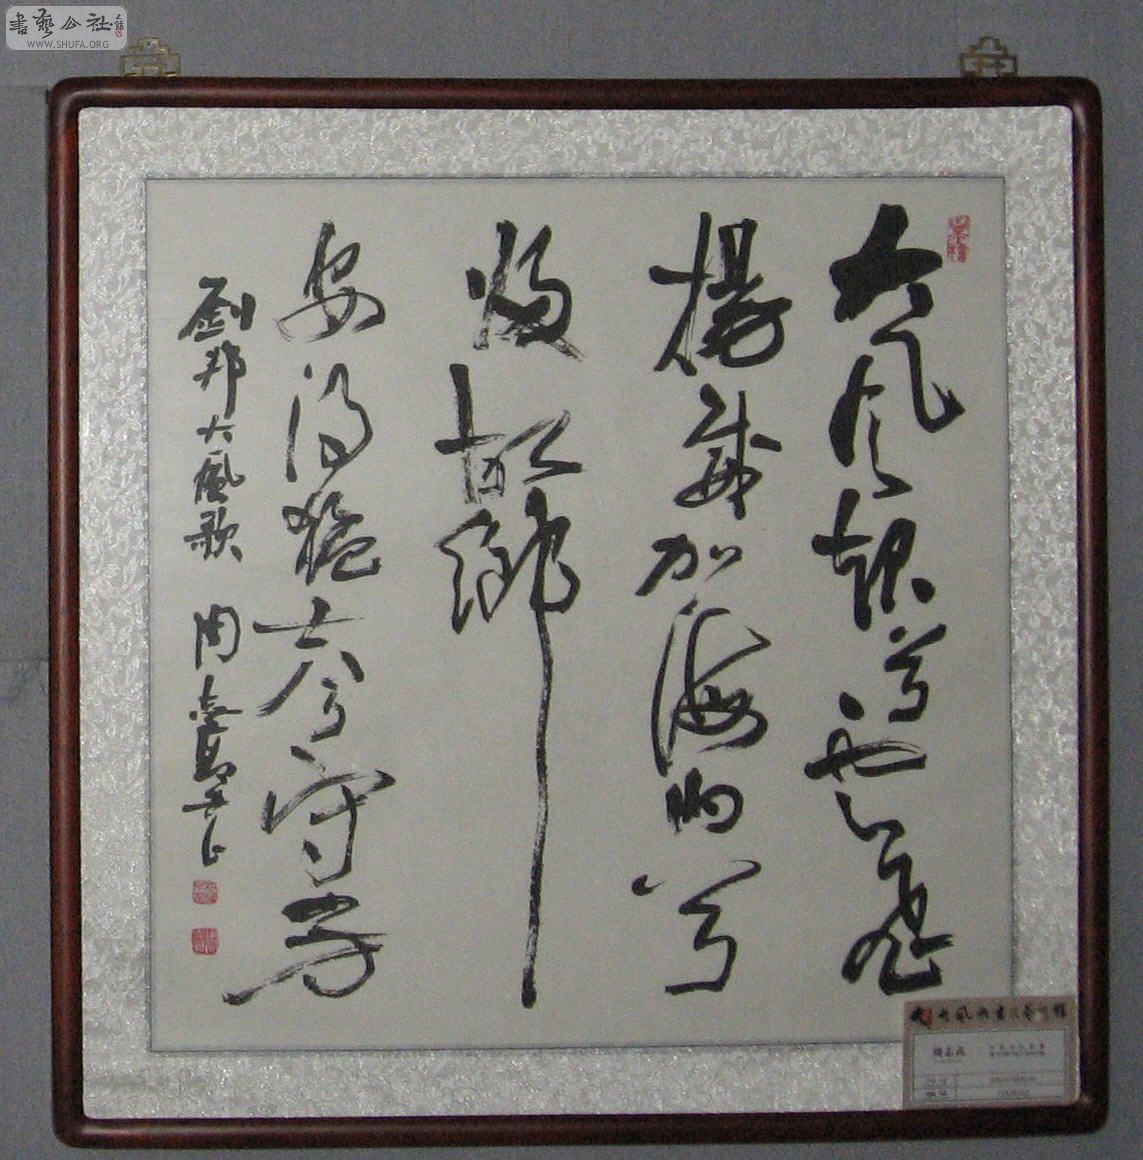 書藝公社
WWW.SHUFA.ORG
大風起兮雲飛
揚威加海內兮
歸故鄉
安得猛士兮守四方
劉邦大風歌 周